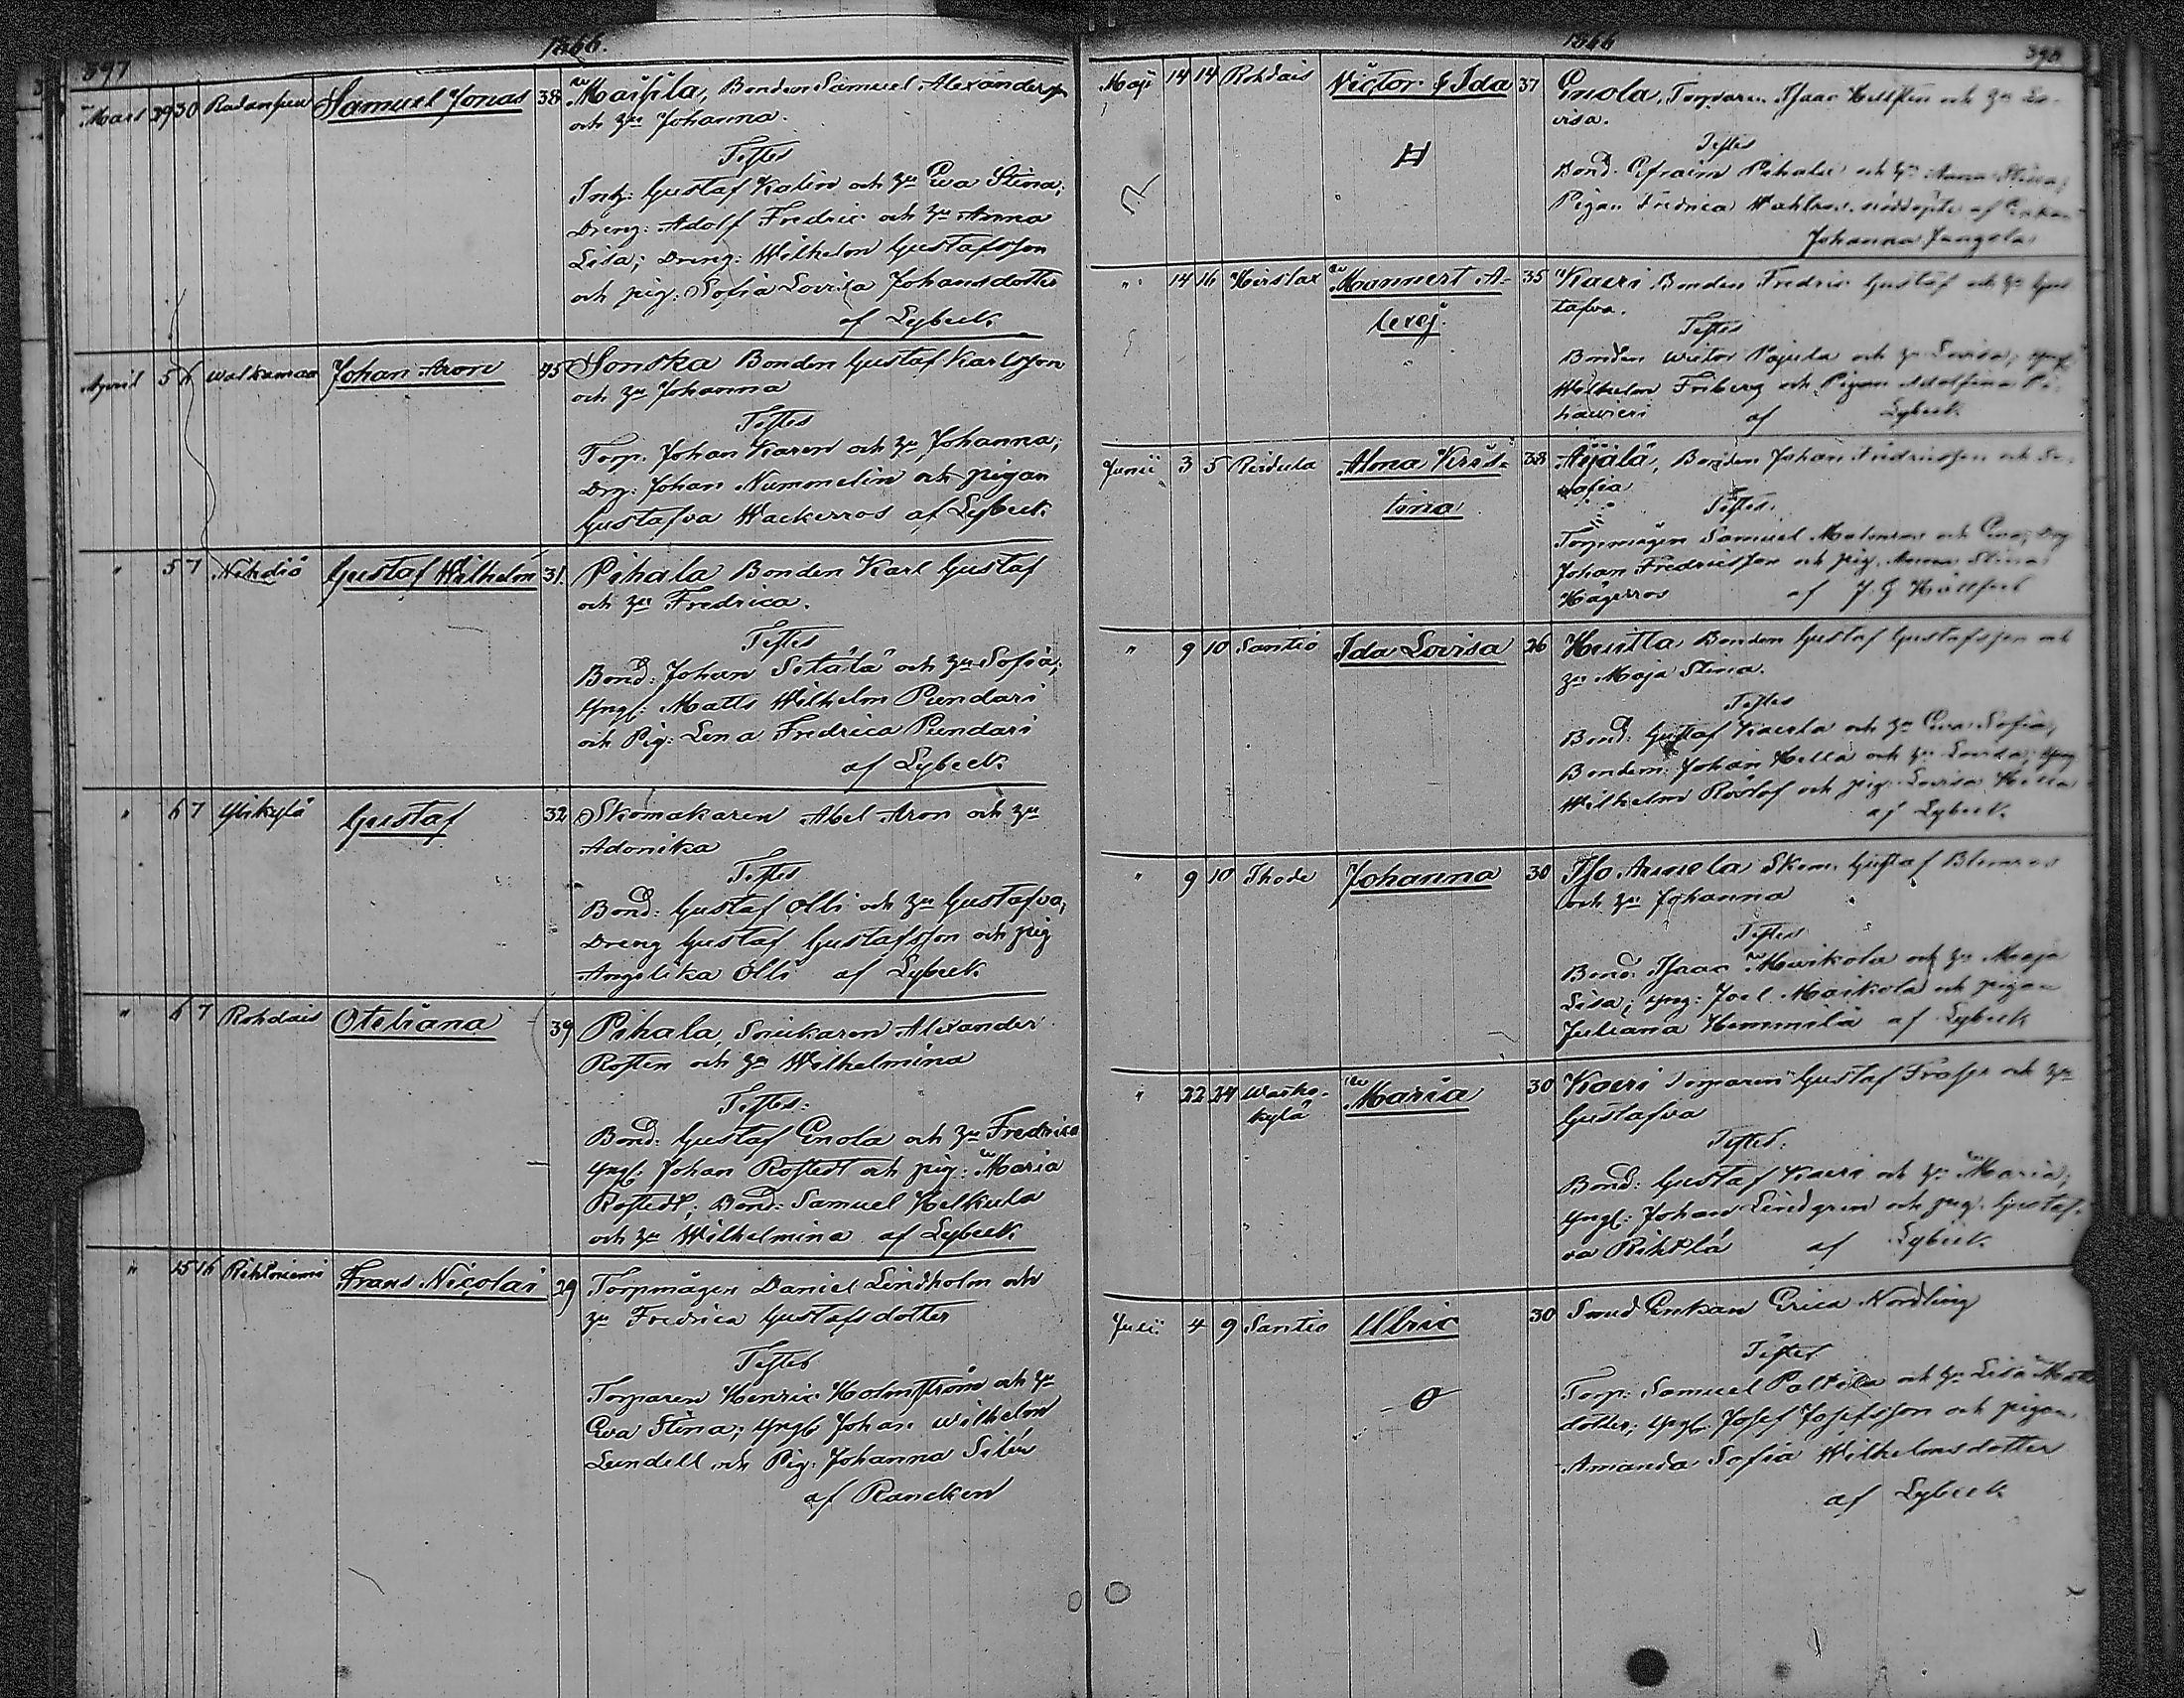 397
1866.
Mars 29 30 Radansuu Samuel Jonas 38 Maijala, Bonden Samuel Alexandersson
och hu Johanna.
Testes
Inh: Gustaf Kalin och hu Eva Stina;
Dreng: Adolf Fredric och hu Anna
Lisa; Dreng: Wilhelm Gustafsson
och pig: Sofia Lovisa Johansdotter
af Lybeck.
April 5 6 Walkamaa Johan Aron 45 Sonska Bonden Gustaf Karlsson
och hu Johanna
Testes
Torp. Johan Karen och hu Johanna;
Drg: Johan Nummelin och pigan
Gustafva Wackerros af Lybeck.
" 5 7 Nihdiö Gustaf Wilhelm 31. Pihala Bonden Karl Gustaf
och hu Fredrica.
Testes
Bond: Johan Setälä och hu Sofia;
Yngl: Matts Wilhelm Pundari
och Pig: Lena Fredrica Pundari
af Lybeck.
" 6 7 Ylikylä Gustaf 32 Skomakaren Abel Aron och hu
Adonika
Testes
Bond: Gustaf Olli och hu Gustafva;
Dreng Gustaf Gustafsson och pig
Angelika Olli af Lybeck.
" 6 7 Rohdais Oteliana 39 Pihala, Snickaren Alexander
Rosten och hu Wilhelmina
Testes:
Bond: Gustaf Enola och hu Fredrica
Yngl: Johan Rostedt och pig: Maria
Rostedt; Bond: Samuel Helkula
och hu Wilhelmina af Lybeck.
" 15 16 Rihtniemi Frans Nicolai 29 Torpmågen Daniel Lindholm och
hu Fredrica Gustafsdotter
Testes
Torparen Henric Holmström och hu
Eva Stina; Yngl: Johan Wilhelm
Lundell och Pig: Johanna Silén
af Rancken
1866
398
Maji 14 14 Rohdais Victor & Ida 37 Enola, Torparen Isaac Hellsten och hu Lo-
visa.
Testes
Bond. Efraim Pihala och hu Anna Stina;
Pigan Fredrica Wahlros. nöddöpte af Enkan
Johanna
" 14 16 Hirslax Mannert A- 35 Kaeri Bonden Fredric Gustaf och hu Gus
lexej. tafva.
Testes
Bonden Victor Pajula och hu Lovisa; Yngl:
Wilhelm Friberg och Pigan Adolfina Pi-
af Lybeck.
Junii 3 5 Reidula Alma Kris- 38 Äijälä, Bonden Johan Fredricsson och
tina Sofia
Testes.
Torpmågen Samuel och Eva; Drg
Johan Fredricsson och pig. Anna Stina
Hägerros af J. G. Hällfors
" 9 10 Santio Ida Lovisa 26 Huitla Bonden Gustaf Gustafsson och
hu Maja Stina.
Testes
Bond: Gustaf Kaerla och hu Eva Sofia;
Bonden: Johan Hella och hu Lovisa; Yng
Wilhelm Roslöf och pig: Lovisa Hella
af Lybeck.
" 9 10 Ihode Johanna 30 Iso Annela Skom. Gustaf Blomros
och hu Johanna
Testes
Bond: Isaac Maikola och hu Maja
Lisa; Yng: Joel Maikola och pigan
Juliana Hemmilä af Lybeck
" 22 24 Warho- Maria 30 Kaeri Torparen Gustaf och hu
kylä Gustafva
Testes:
Bond: Gustaf Kaeri och hu Maria;
Yngl: Johan Lindgren och pig: Gustaf-
va Rihtlä af Lybeck.
Julii 4 9 Santio Ulric 30 Smed Enkan Erica Nordling
Testes
Torp: Samuel Paltila och hu Lisa Matts
dotter; Yngl: Josef Josefsson och pigan
Amanda Sofia Wilhelmsdotter
af Lybeck